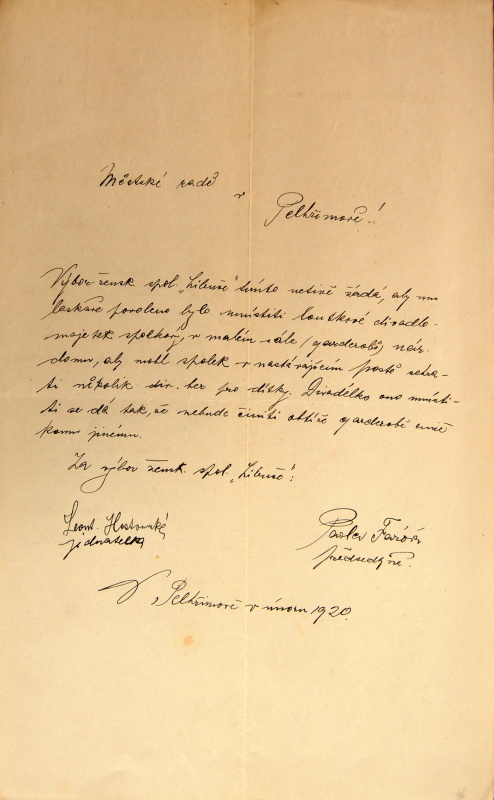 Městské radě
v
Pelhřimově!
Výbor žensk. spol. „Libuše" tímto uctivě žádá, aby mu
laskavě povoleno bylo umístiti loutkové divadlo-
majetek spolkový, v malém sále (garderobě) nár.
domu, aby mohl spolek v nastávajícím postě sehrá-
ti několik div. her pro dítky. Divadélko ono umísti-
ti se dá tak, že nebude činiti obtíže garderobě
komu jinému.
Za výbor žensk. spol. „Libuše":
Leont. Hostovská
jednatelka
Pavla
předsedkyně.
V Pelhřimově v únoru 1920.